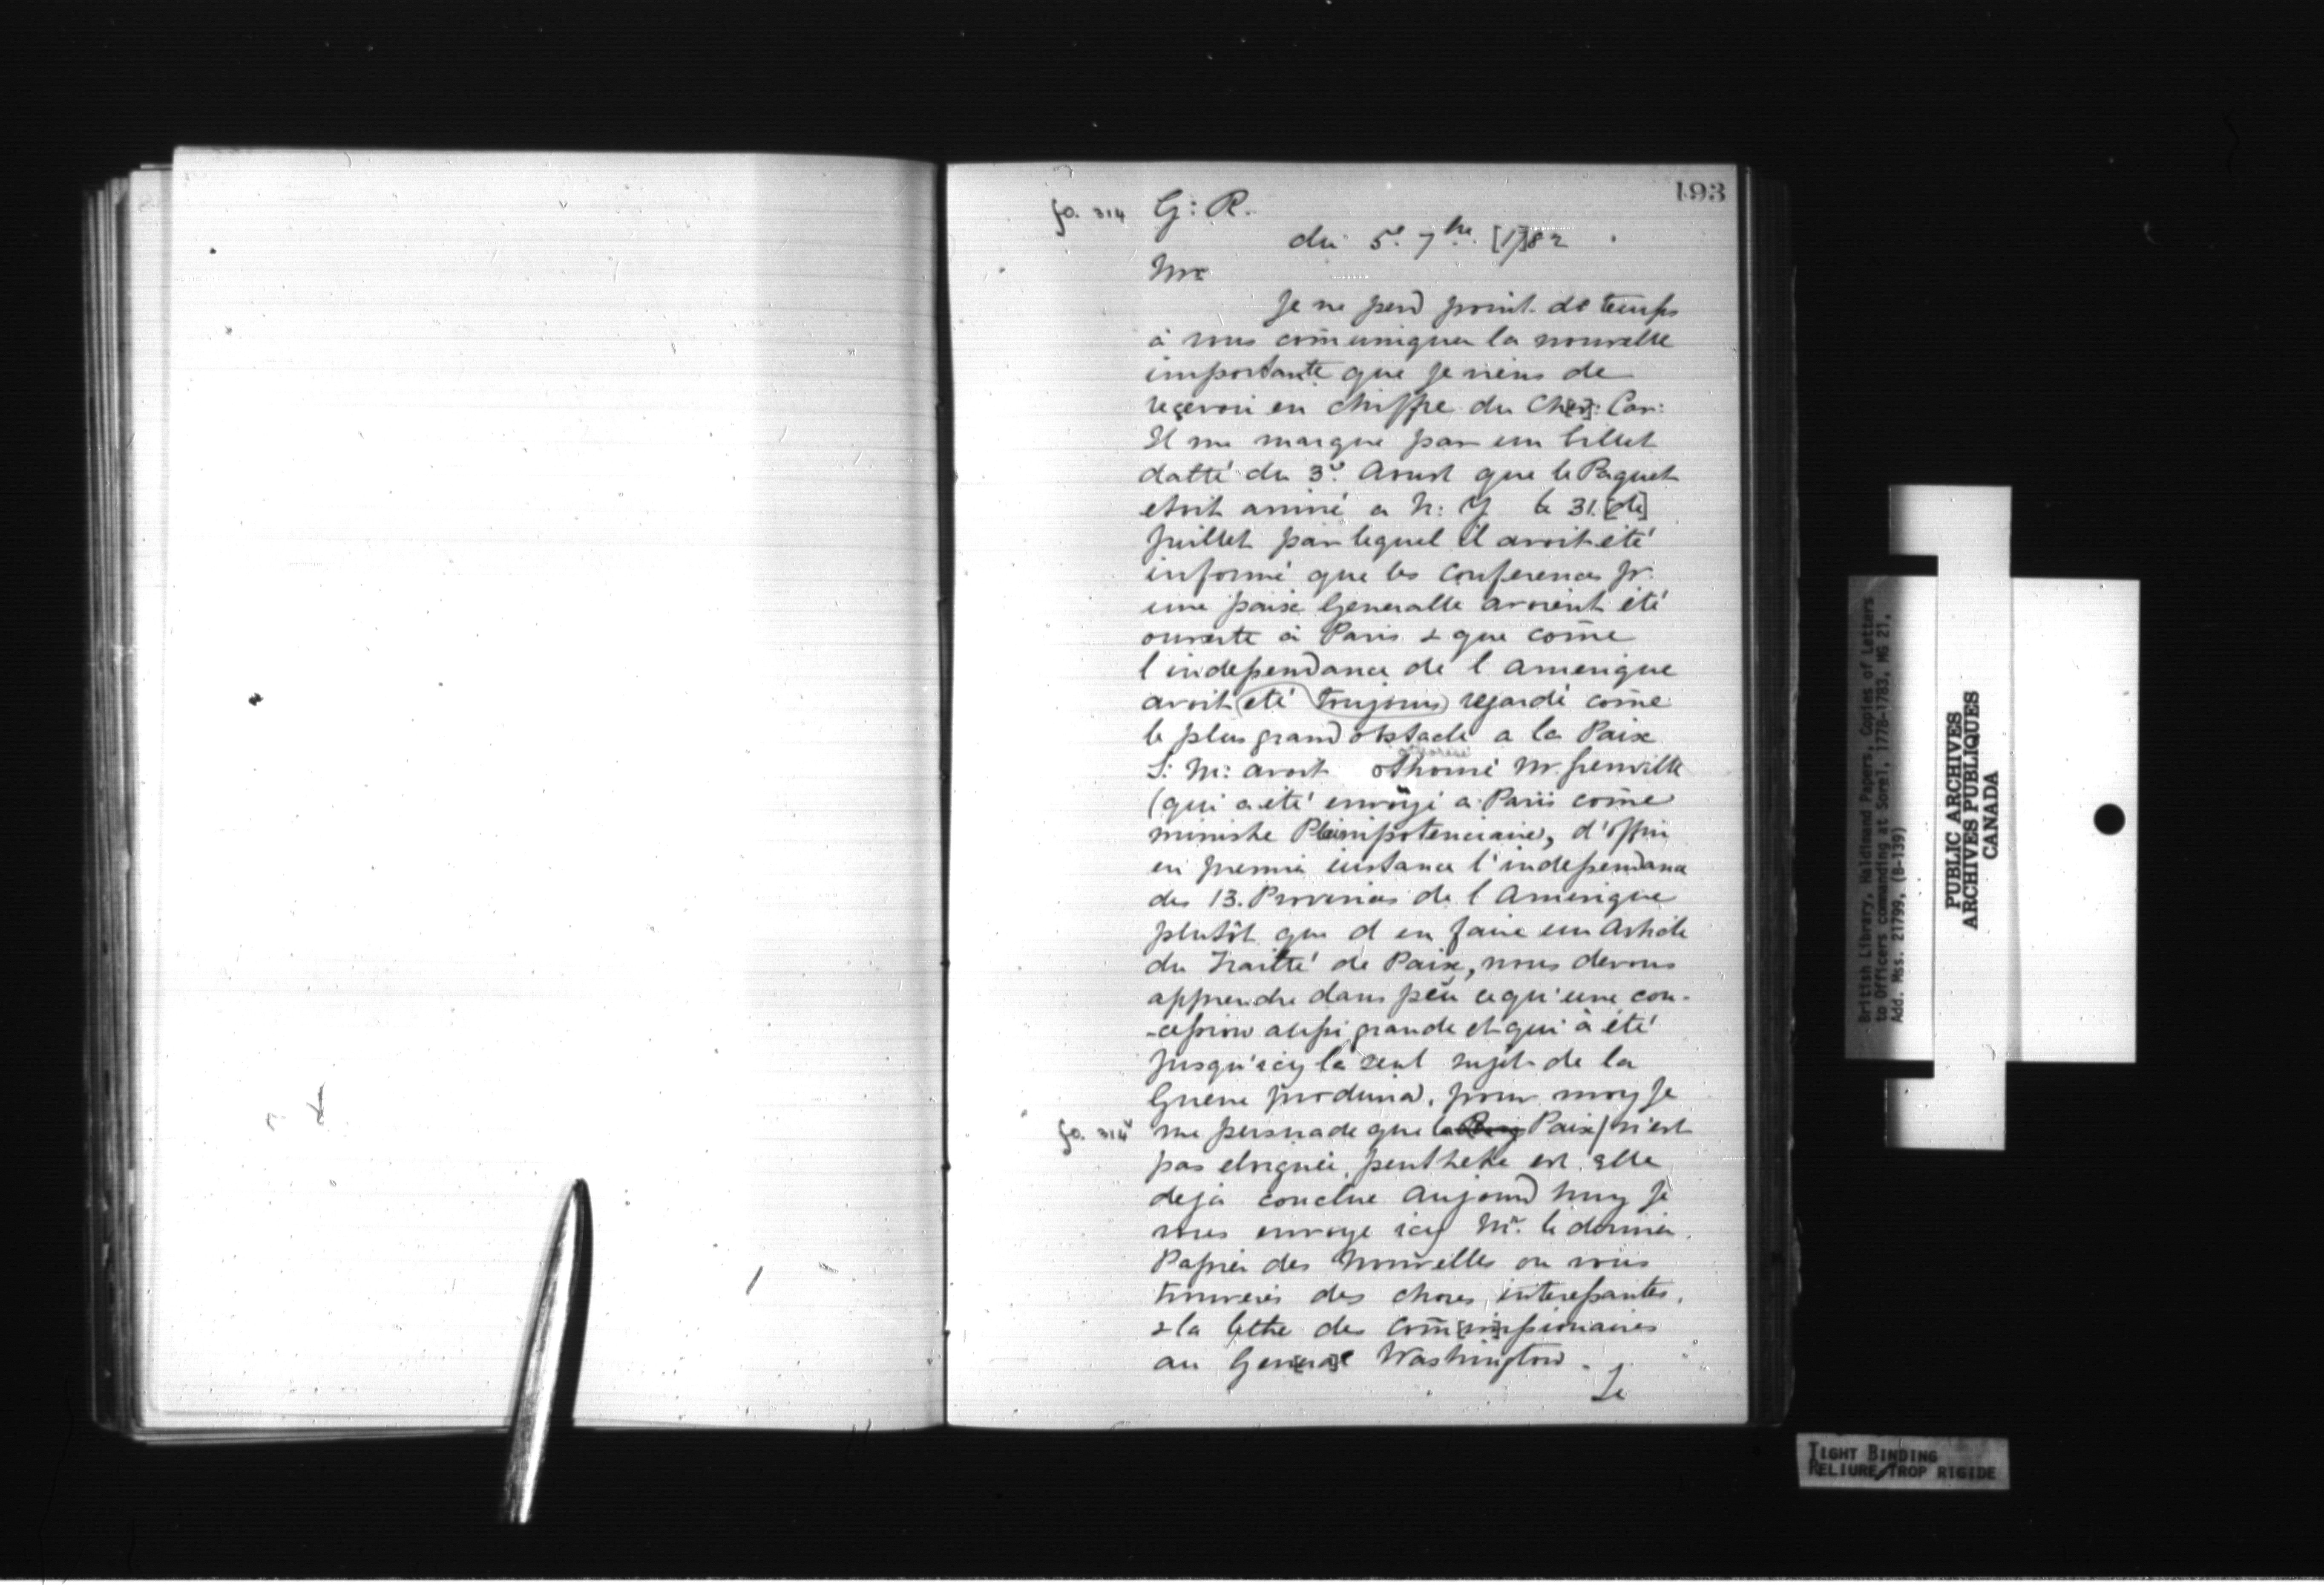 193
fo. 314 G: R.
du 5e. 7bre. [17]82
Mr
Je ne perd point de temps
à vous com̄uniquer la nouvelle
importante que je viens de
reçevoir en chiffre du Ch[er]: Car:
Il me marque par un billet
datté du 3e. Aoust que le Paquet
etoit arrivé a N: Y le 31. [de]
Juillet par lequel il avoit été
informé que les Conferences pr.
une paix Generalle avoient été
ouverte à Paris & que com̄e
l'independance de l'Amerique
avoit eté toujours regardé com̄e
le plus grand obstacle a la Paix
S: M: avoit othorisé Mr. Grenville
(qui a été envoÿé a Paris com̄e
ministre Plenipotenciaire), d'offrir
en premié instance l'independance
des 13. Provinces de l'Amerique
plutôt que d'en faire un Article
du Traitté de Paix, nous devons
apprendre dans peu ce qu'une con-
-cession aussi grande et qui à été
Jusqu'icy le seul sujet de la
Guerre produira. pour moy je
fo. 314v me persuade que la Paix/ n'est
pas eloignée, peuthetre est elle
deja conclue aujourd huy je
vous envoye icy Mr. le dernier
Papier des Nouvelles ou vous
trouverés des choses interessantes,
& la lettre des Com̄[mi]ssionaires
au Gen[era]l Washington.
Le
British Library, Haldimand Papers, Copies of Letters
to Officers commanding at Sorel, 1778-1783, MG 21,
Add. Mss. 21799, (B-139)
PUBLIC ARCHIVES
ARCHIVES PUBLIQUES
CANADA
TIGHT BINDING
RELIURE TROP RIGIDE